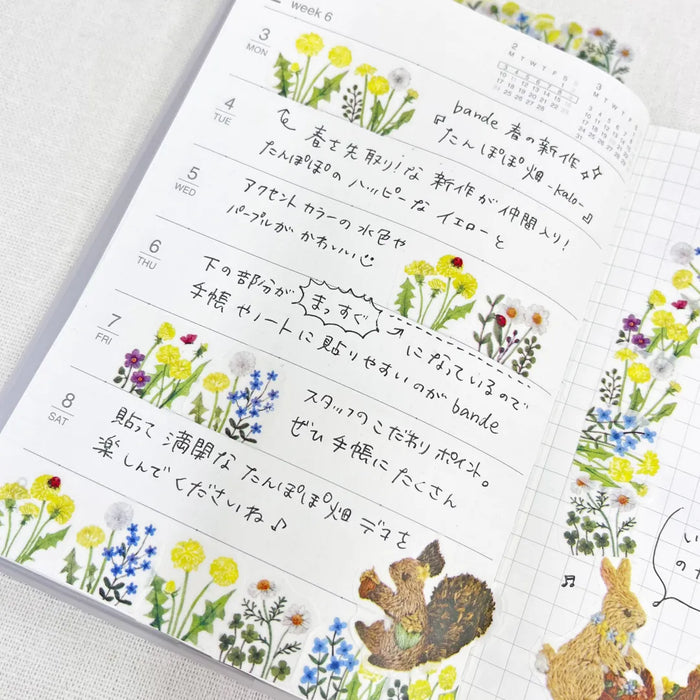 week 6
3
MON
4
TUE
5
WED
6
THU
7
FRI
8
SAT
2
M T W T F S S
3 4 5 6 7 8 9
10 11 12 13 14 15 16
17 18 19 20 21 22 23
24 25 26 27 28
3
M T W T F S
bande 春の新作
『たんぽぽ畑 -kato-』
春を先取り！な 新作が 仲間入り！
たんぽぽの ハッピーな イエローと
アクセントカラーの 水色や
パープルが かわいい
下の部分が まっすぐ → になっているので
手帳 やノートに 貼りやすいのが bande
スタッフの こだわり ポイント。
ぜひ 手帳に たくさん
貼って 満開な たんぽぽ畑 デコを
楽しんで くださいね♪
い
の
♬